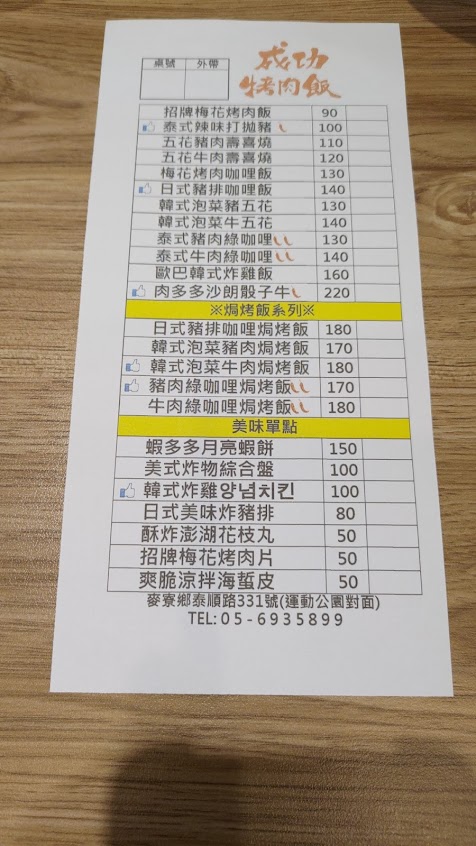 桌號 外帶
成功
烤肉飯
招牌梅花烤肉飯 90
泰式辣味打拋豬 100
五花豬肉壽喜燒 110
五花牛肉壽喜燒 120
梅花烤肉咖哩飯 130
日式豬排咖哩飯 140
韓式泡菜豬五花 130
韓式泡菜牛五花 140
泰式豬肉綠咖哩 130
泰式牛肉綠咖哩 140
歐巴韓式炸雞飯 160
肉多多沙朗骰子牛 220
※焗烤飯系列※
日式豬排咖哩焗烤飯 180
韓式泡菜豬肉焗烤飯 170
韓式泡菜牛肉焗烤飯 180
豬肉綠咖哩焗烤飯 170
牛肉綠咖哩焗烤飯 180
美味單點
蝦多多月亮蝦餅 150
美式炸物綜合盤 100
韓式炸雞양념치킨 100
日式美味炸豬排 80
酥炸澎湖花枝丸 50
招牌梅花烤肉片 50
爽脆涼拌海蜇皮 50
麥寮鄉泰順路331號(運動公園對面)
TEL:05-6935899